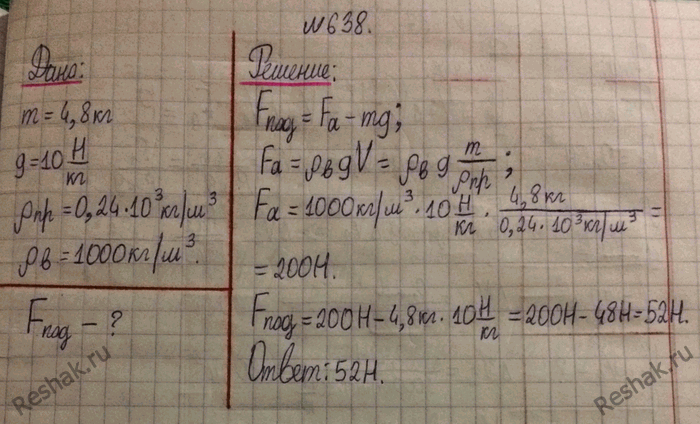 №638.
Дано:
m = 4,8 кг
g = 10 Н/кг
ρпр = 0,24·10³ кг/м³
ρв = 1000 кг/м³.
Fпод – ?
Решение:
Fпод = Fа – mg;
Fа = ρв g V = ρв g m/ρпр;
Fа = 1000 кг/м³ · 10 Н/кг · 4,8 кг/0,24·10³ кг/м³ =
= 200Н.
Fпод = 200Н – 4,8 кг · 10 Н/кг = 200Н – 48Н = 52Н.
Ответ: 52Н.
Reshak.ru
Reshak.ru